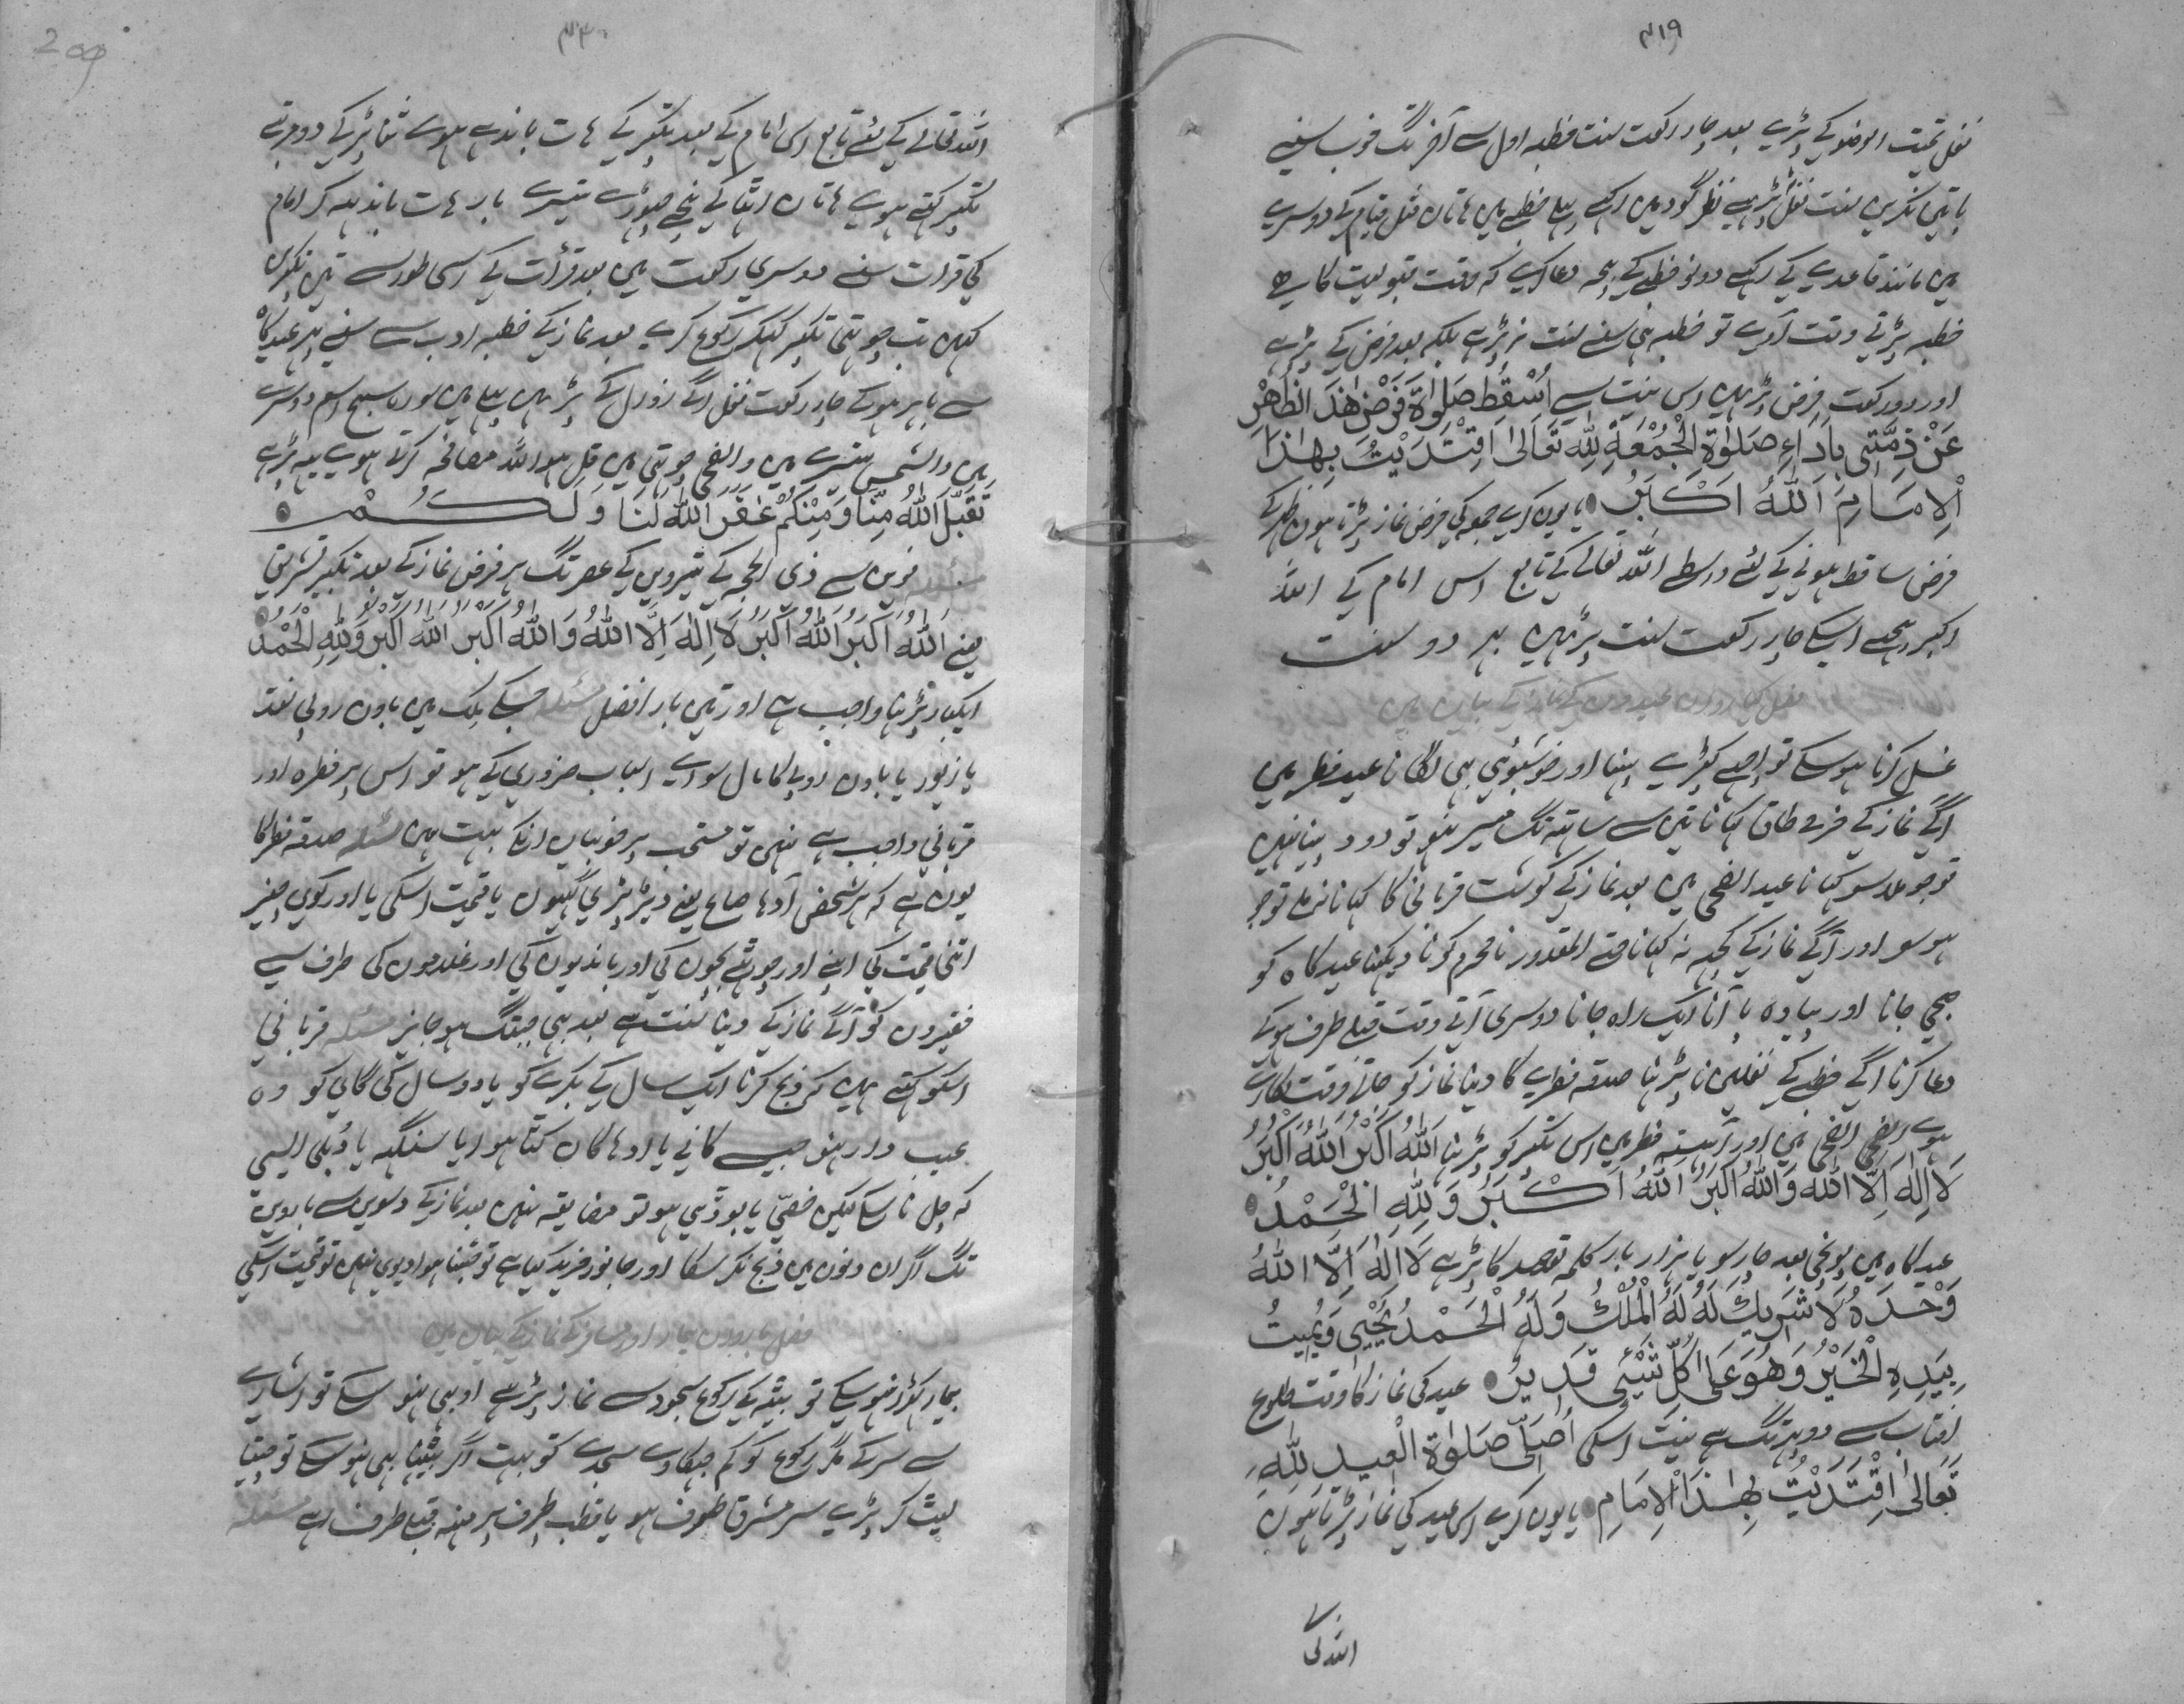 ۳۱۹
نفل تحیت الوضو کے پڑے بعد چار رکعت سنت خطبہ اول سے آخر تگ خوب سنے
باتیں نکریں سنت نفل نپڑے نظر گود میں رکہے پہلے خطبے میں هاتان مثل قیام کے دوسرے
میں مانند قاعدے کے رکہے دونو خطبے کے بیچہ دعا کرے کہ وقت قبولیت کا ہے
خطبہ پڑتے وقت آوے تو خطبہ ہی سنے سنت نہ پڑہے بلکہ بعد فرض کے پڑے
اور دو رکعت فرض پڑہیں اس نیت سے اُسْقُطِ صَلَوٰاةَ فَرْضِ هٰذَ الظُّهْرِ
عَنْ ذِمَّتِى بِاَدَاءِ صَلَوٰةِ الْجُمُعَةِ لِلّٰهِ تَعَالىٰ اَقْتَدَيْتُ بِهٰذَا
الْاِمَامِ اَللّٰهُ اَكْبَرُ یا یوں کہے جمعہ کی فرض نماز پڑتا ہوں ظہر کے
فرض ساقط ہونے کے لئے واسطے اللہ تعالے کے تابع اس امام کے اللہ
اکبر پیچہے اسکے چار رکعت سنت پڑہیں پہر دو سنت
فصل گیاروان عیدوں کے نماز کے بیان میں
غسل کرنا ہوسکے تو اچہے کپڑے پہننا اور خوشبوئی بہی لگانا عید فطر میں
آگے نماز کے خرمے طاق کہانا تین سے سات تگ میسر نہو تو دود پینا نہیں
تو جو ملا سو کہانا عید الضحی میں بعد نماز کے گوشت قربانی کا کہانا نہ ملے تو جو
ہو سو اور آگے نماز کے کچہ نہ کہانا حتے المقدور نامحرم کو نا دیکہنا عیدگاہ کو
صبحی جانا اور پیادہ پا آنا ایک راہ جانا دوسری آتے وقت قبلے طرف ہوکے
دعا کرنا آگے خطبے کے نفلیں نا پڑنا صدقہ فطرے کا دینا نماز کو جاتے وقت پکارتے
ہوے الضحی الضحی میں اور آہستہ فطر میں اس تکبیر کو پڑنا اَللّٰهُ اَكْبَرُ اَللّٰهُ اَكْبَرُ
لَا اِلٰهَ اِلَّا اللّٰهُ وَاللّٰهُ اَكْبَرُ اَللّٰهُ اَكْبَرُ وَلِلّٰهِ الْحَمْدُ
عیدگاہ میں پونچی بعد چار سو یا ہزار بار کلمہ توحید کا پڑہے لَا اِلٰهَ اِلَّا اللّٰهُ
وَحْدَهُ لَا شَرِيْكَ لَهُ لَهُ الْمُلْكُ وَلَهُ الْحَمْدُ يُحْيِىْ وَيُمِيْتُ
بِيَدِهِ الْخَيْرُ وَهُوَ عَلىٰ كُلِّ شَيْئٍ قَدِيْرٌ عید کی نماز کا وقت طلوع
افتاب سے دوپہر تگ ہے نیت اسکی اُصَلِّى صَلَوٰةَ الْعِيدِ لِلّٰهِ
تَعَالىٰ اِقْتَدَيْتُ بِهٰذَا الْاِمَامِ یا یوں کہے اس عید کی نماز پڑتا ہوں
اللہ کے
۳۲۰
اللہ تعالے کے لئے تابع اس امام کے بعد تکبیر کے هات باندہے ہوے ثنا پڑ کے دو مرتبے
تکبیر کہتے ہوے هاتان اٹھاکے نیچے چہوڑے تیسرے بار هات باندہہ کر امام
کی قراءت سنے دوسری رکعت میں بعد قراءت کے اسی طور سے تین تکبیریں
کہیں تب چوتہی تکبیر کہکر رکوع کرے بعد نماز کے خطبہ ادب سے سنے پہر عیدگاہ
سے باہر ہوکے چار رکعت نفل آگے زوال کے پڑہیں پہلے میں سورہ سبح اسم دوسرے
میں والشمس تیسرے میں والضحی چوتہی میں قل ہو اللہ مصافحہ کرتے ہوے یہہ پڑہے
تَقَبَّلَ اللّٰهُ مِنَّا وَمِنْكُمْ غَفَرَ اللّٰهُ لَنَا وَلَكُمْ
مسئلہ نویں سے ذی الحجہ کے تیرویں کے عصر تگ ہر فرض نماز کے بعد تکبیر تشریق
یعنے اَللّٰهُ اَكْبَرُ اَللّٰهُ اَكْبَرُ لَا اِلٰهَ اِلَّا اللّٰهُ وَاللّٰهُ اَكْبَرُ اَللّٰهُ اَكْبَرُ وَلِلّٰهِ الْحَمْدُ
ایکبار پڑہنا واجب ہے اور تین بار افضل مسئلہ جسکے ملک میں باون روپی نقد
یا زیور یا باون روپے کا مال سواے اسباب ضروری کے ہو تو اس پر فطرہ اور
قربانی واجب ہے نہیں تو مستحب پر خوبیاں انکے بہت ہیں مسئلہ صدقہ فطر کا
یوں ہے کہ ہر شخص آدہا صاع یعنے دیڑ پڑی گیہوں یا قیمت اسکی یا اور کوی چیز
اتنی قیمت کی اپنے اور چہوٹے بچوں کی اور باندیوں کی اور غلاموں کی طرف سے
فقیروں کو آگے نماز کے دینا سنت ہے بعد بہی جبتگ ہو جایز مسئلہ قربانی
اسکو کہتے ہیں کہ ذبح کرنا ایک سال کے بکرے کو یا دو سال کی گائی کو وہ
عیب دار نہو جیسے کانی یا ادہا کان کٹا ہوا یا سنگہہ یا دُبلی ایسی
کہ چل نا سکے لیکن خصی یا بوڈی ہو تو مضایقہ نہیں بعد نماز کے دسویں سے بارویں
تگ اگر ان دنوں میں ذبح نکر سکا اور جانور خرید کیا ہے تو جیتا ہوا دیوے نہیں تو قیمت اسکی
فصل بارواں بیمار اور مسافر کے نماز کے بیان میں
بیمار کہڑا نہو سکے تو بیٹہہ کے رکوع سجود سے نماز پڑہے او بہی نہو سکے تو اشارے
سے سر کے مگر رکوع کو کم جہکاوے سجدے کو بہت اگر بیٹہنا بہی نہو سکے تو چیتا
لیٹ کر پڑے سر مشرق طرف ہو یا قطب طرف پر منہ قبلے طرف رہے مسئلہ